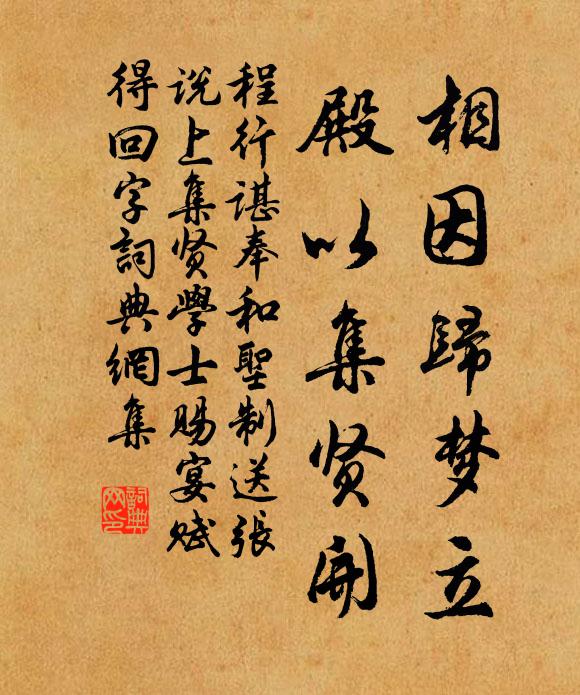 相因歸梦立
殿以集贤開
程行諶奉和聖制送張
说上集贤學士賜宴赋
得回字詞典網集
詞典
网印